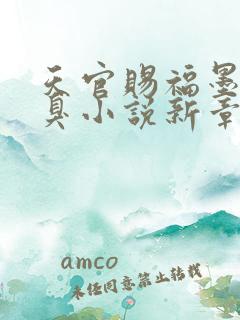 天官赐福墨
真小说新章
amco
未经同意禁止转载